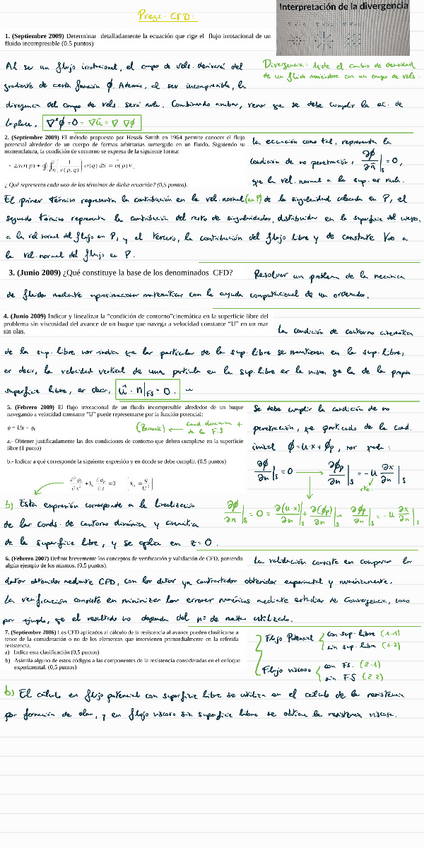 Pregs. CFD:
Interpretación de la divergencia
1. (Septiembre 2009) Determinar detalladamente la ecuación que rige el flujo irrotacional de un
fluido incompresible (0.5 puntos)
Divergencia: mide el cambio de densidad
de un fluido moviéndose con un campo de vels.
Al ser un flujo irrotacional, el campo de vels. derivará del
gradiente de cierta función ϕ. Además, al ser incompresible, la
divergencia del campo de vels. será nula. Combinando ambas, vemos que se debe cumplir la ec. de
Laplace, ∇²ϕ=0 = ∇ū = ∇ ∇ϕ
2. (Septiembre 2009) El método propuesto por Hess& Smith en 1964 permite conocer el flujo
potencial alrededor de un cuerpo de formas arbitrarias sumergido en un fluido. Siguiendo su
nomenclatura, la condición de contorno se expresa de la siguiente forma:
¿Qué representa cada uno de los términos de dicha ecuación? (0,5 puntos).
la ecuación como tal, representa la
condición de no penetración, ∂ϕ/∂n|s = 0,
que la vel. normal a la sup. es nula.
El primer término representa la contribución en la vel. normal (en P) de la singularidad colocada en P, el
segundo término representa la contribución del resto de singularidades, distribuidas en la superficie del cuerpo,
a la vel normal del flujo en P, y el tercero, la contribución del flujo libre y de constante V∞ a
la vel. normal del flujo en P.
3. (Junio 2009) ¿Qué constituye la base de los denominados CFD?
Resolver un problema de la mecánica
de fluidos mediante aproximaciones matemáticas con la ayuda computacional de un ordenador.
4. (Junio 2009) Indicar y linealizar la "condición de contorno"cinemática en la superficie libre del
problema sin viscosidad del avance de un buque que navega a velocidad constante "U" en un mar
sin olas.
la condición de contorno cinemática
de la sup. libre nos indica que las partículas de la sup. libre se mantienen en la sup. libre,
es decir, la velocidad vertical de una partícula en la sup. libre es la misma que la de la propia
superficie libre, es decir, ū · n|FS = 0.
5. (Febrero 2009) El flujo irrotacional de un fluido incompresible alrededor de un buque
navegando a velocidad constante "U" puede representarse por la función potencial:
a.- Obtener justificadamente las dos condiciones de contorno que deben cumplirse en la superficie
libre (1 punto)
b.- Indicar a qué corresponde la siguiente expresión y en donde se debe cumplir. (0.5 puntos)
Se debe cumplir la condición de no
penetración, que partiendo de la cond.
inicial ϕ = u·x + ϕp, nos queda:
∂ϕ/∂n|s = 0 → ∂ϕp/∂n|s = -u ∂x/∂n|s
b) Esta expresión corresponde a la linealización
de las conds. de contorno dinámica y cinemática
de la superficie libre, y se aplica en z=0.
∂ϕ/∂n|s = 0 = ∂(u·x)/∂n|s + ∂(ϕp)/∂n|s → ∂ϕp/∂n|s = -u ∂x/∂n|s
6. (Febrero 2007) Definir brevemente los conceptos de verificación y validación de CFD, poniendo
algún ejemplo de los mismos. (0,5 puntos).
la validación consiste en comparar los
datos obtenidos mediante CFD, con los datos ya contrastados obtenidos experimental y numéricamente.
la verificación consiste en minimizar los errores numéricos mediante estudios de Convergencia, como
por ejemplo, que el resultado no dependa del nº de mallas utilizado.
7. (Septiembre 2006) Los CFD aplicados al cálculo de la resistencia al avance pueden clasificarse a
tenor de la consideración o no de los elementos que intervienen primordialmente en la referida
resistencia.
a) Indica esta clasificación (0,5 puntos)
b) Asimila alguno de estos códigos a las componentes de la resistencia consideradas en el enfoque
experimental. (0,5 puntos)
Flujo Potencial
con sup. libre (1-1)
sin sup. libre (1-2)
Flujo viscoso
con FS. (2-1)
sin FS (2-2)
b) El cálculo en flujo potencial con superficie libre se utiliza en el cálculo de la resistencia
por formación de olas, y en flujo viscoso sin superficie libre se obtiene la resistencia viscosa.